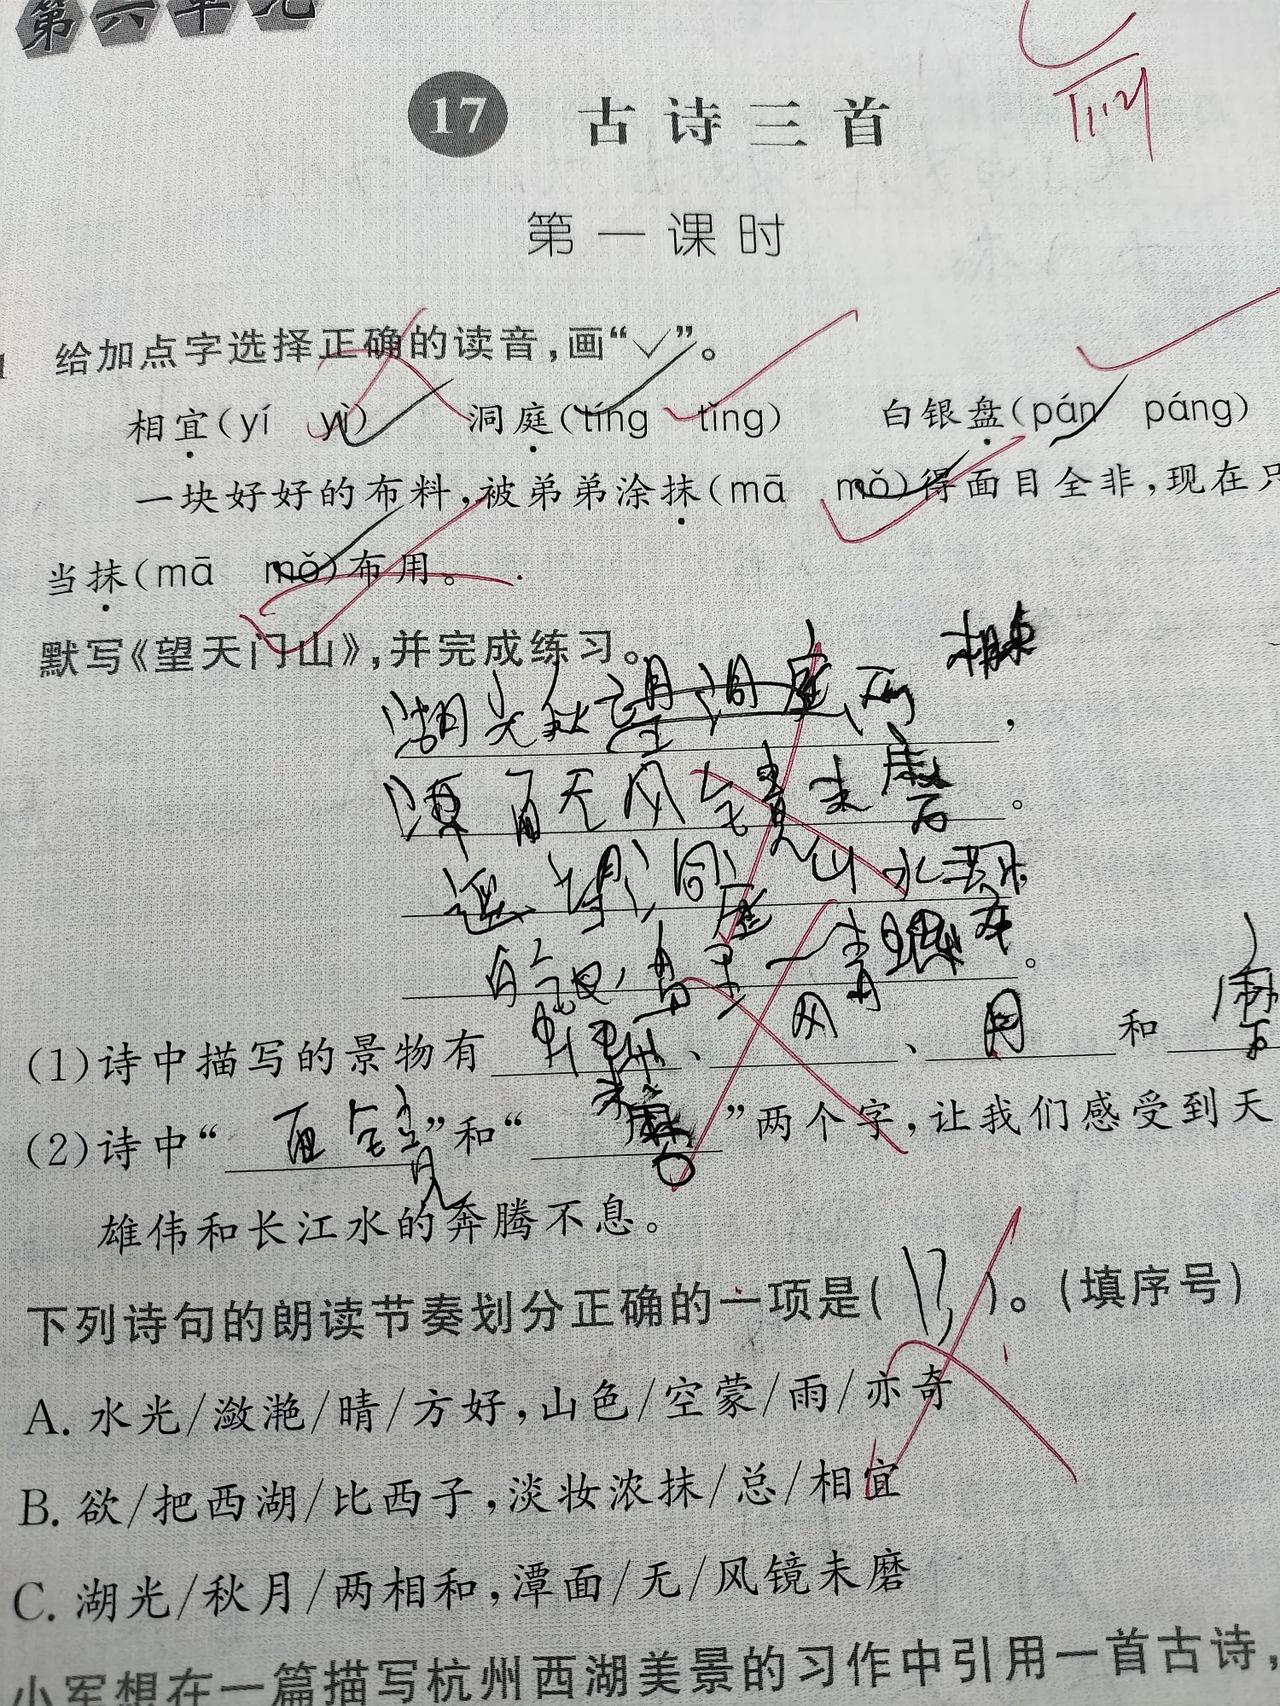 第六单元
17 古诗三首
第一课时
给加点字选择正确的读音,画“✓”。
相宜(yí yì) 洞庭(tíng tǐng) 白银盘(pán páng)
一块好好的布料,被弟弟涂抹(mā mǒ)得面目全非,现在只
当抹(mā mǒ)布用。
默写《望天门山》,并完成练习。
湖光秋 两 ,
潭面无风镜未磨。
遥望洞庭山水翠
白银盘里一青螺。
(1)诗中描写的景物有 、风、月和
(2)诗中“面镜”和“未磨”两个字,让我们感受到天
雄伟和长江水的奔腾不息。
下列诗句的朗读节奏划分正确的一项是( B )。(填序号)
A. 水光/潋滟/晴/方好,山色/空蒙/雨/亦奇
B. 欲/把西湖/比西子,淡妆浓抹/总/相宜
C. 湖光/秋月/两相和,潭面/无/风镜未磨
小军想在一篇描写杭州西湖美景的习作中引用一首古诗,